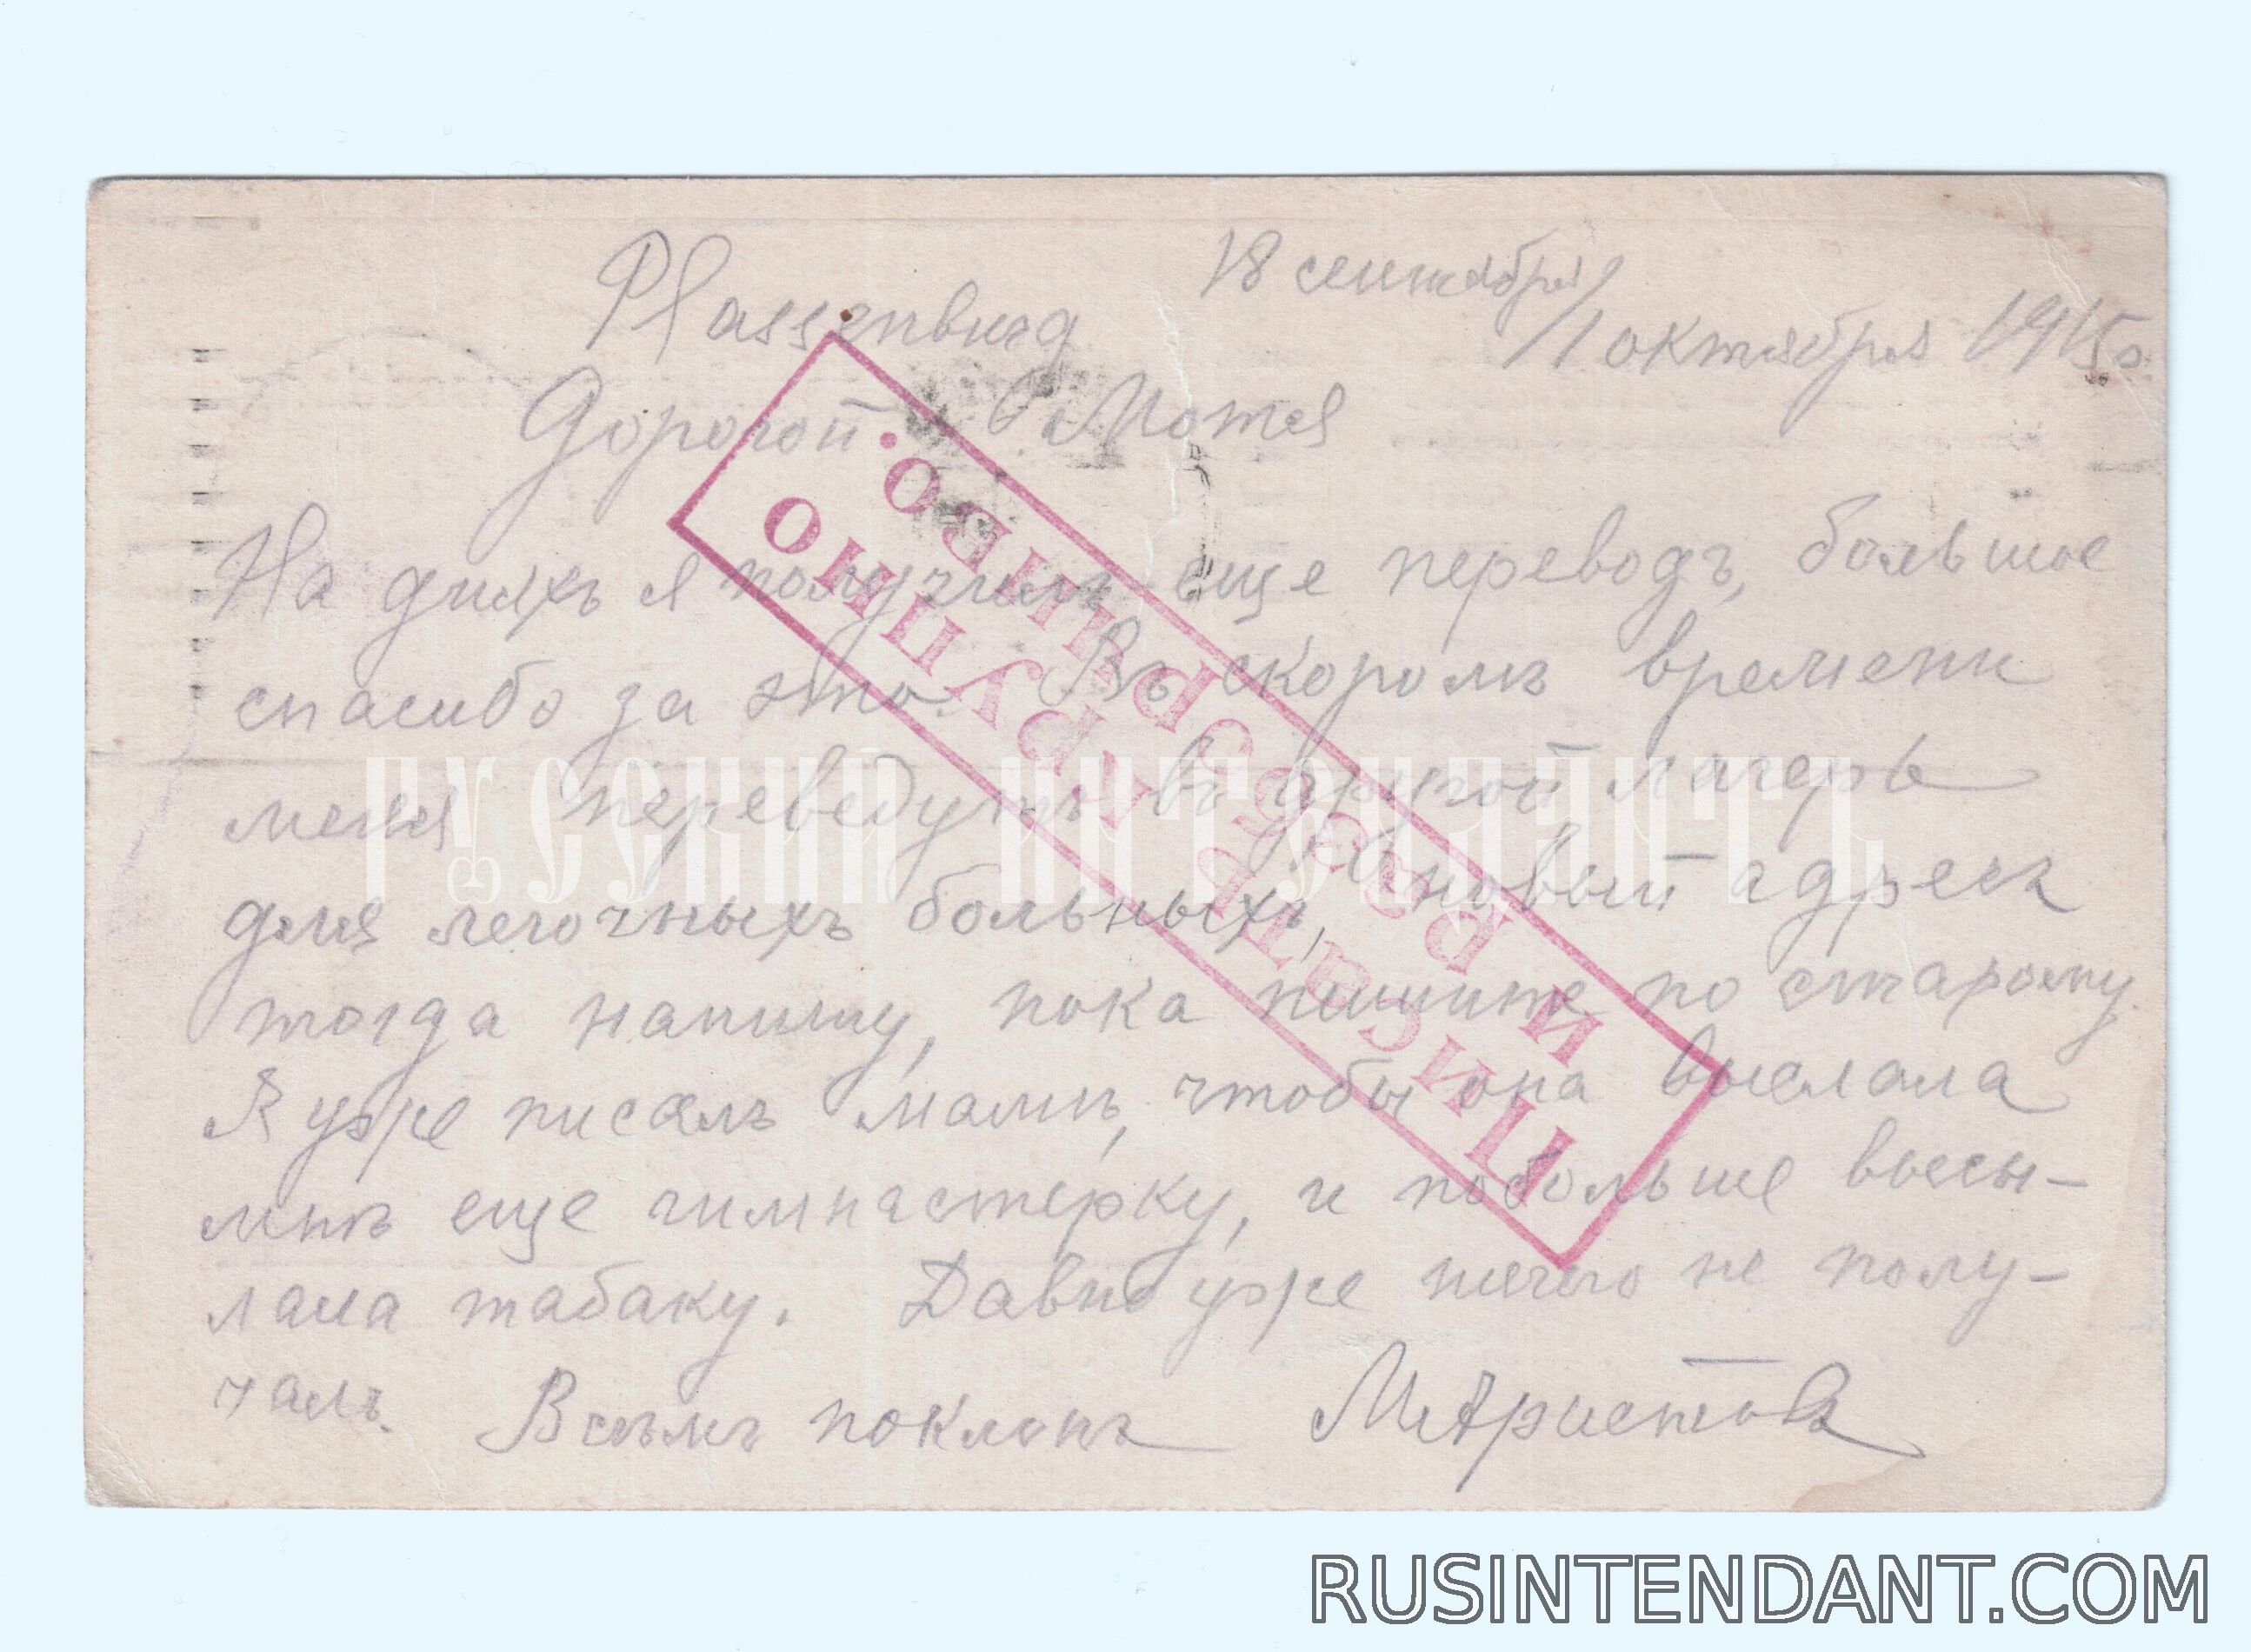 Plassenburg 18 сентября
/1 октября 1915 г.
Дорогой Мотя
На дняхъ я получилъ еще переводъ, большое
спасибо за это. Въ скоромъ времени
меня переведутъ въ другой лагерь
для легочныхъ больныхъ, новый адресъ
тогда напишу, пока пишите по старому.
Я уже писалъ мамѣ, чтобы она выслала
мнѣ еще гимнастерку, и побольше высы-
лала табаку. Давно уже ничего не полу-
чалъ. Всѣмъ поклонъ М. Аристовъ
Писать крупно
и разборчиво.
РУССКIЙ ИНТЕНДАНТЪ
RUSINTENDANT.COM